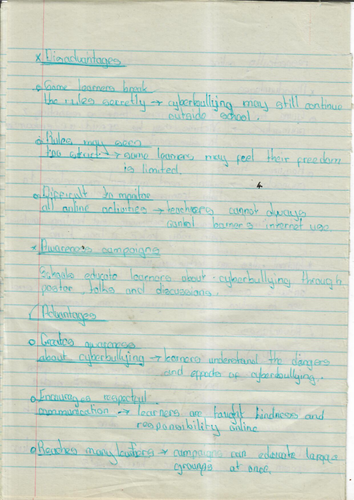 x Disadvantages
o Some learners break
the rules secretly → cyberbullying may still continue
outside school.
o Rules may seem
too strict → some learners may feel their freedom
is limited.
o Difficult to monitor
all online activities → teachers cannot always
control learners internet use.
* Awareness campaigns
Schools educate learners about cyberbullying through
poster, talks and discussions.
Advantages
o Creates awareness
about cyberbullying → learners understand the dangers
and effects of cyberbullying.
o Encourages respectful
communication → learners are taught kindness and
responsibility online
o Reaches many learners → campaigns can educate large
groups at once.